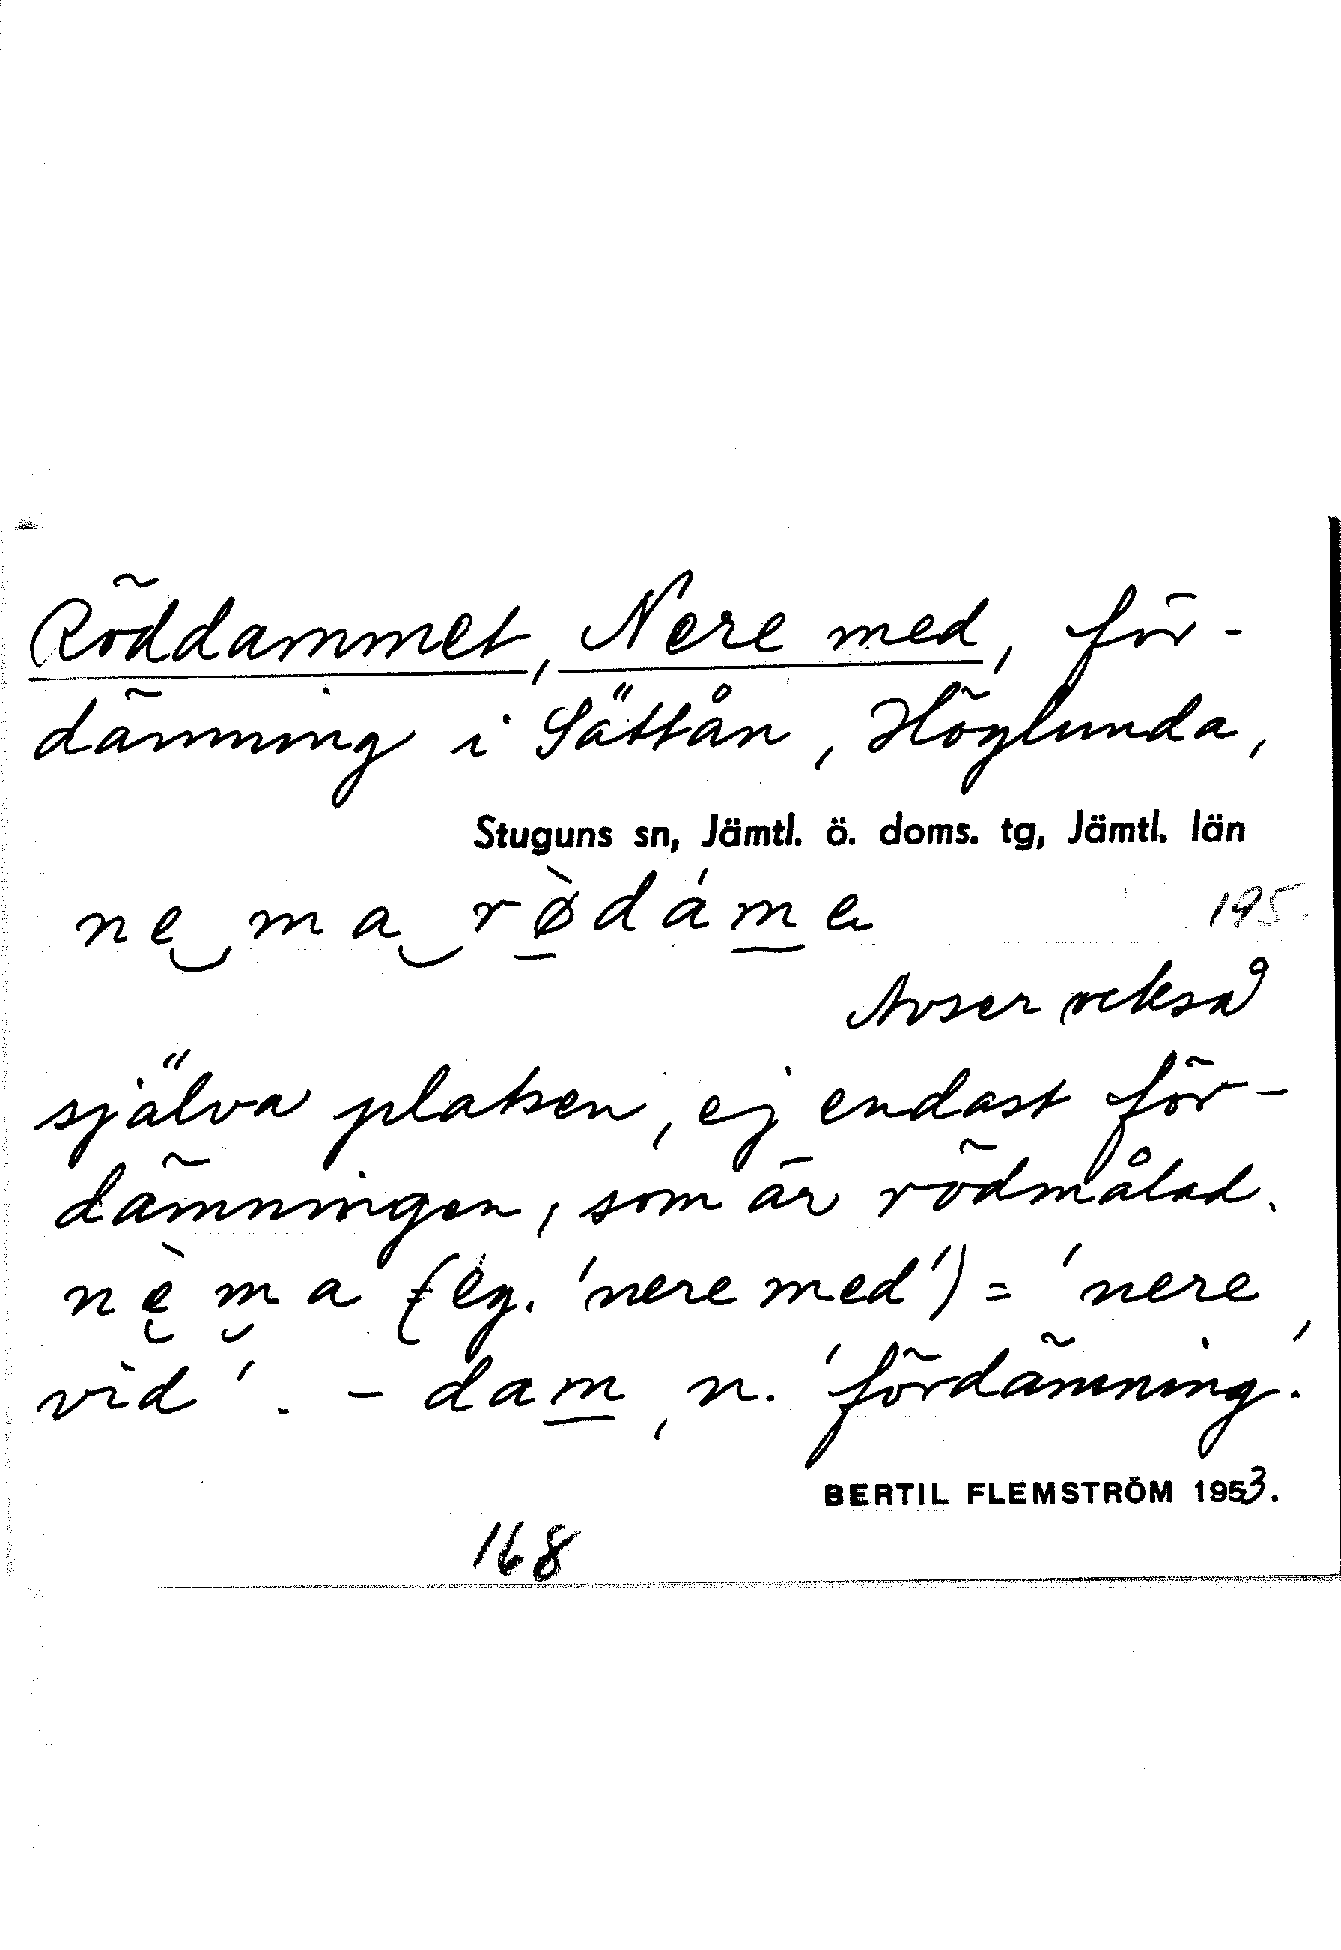 Röddammet, Nere med, för-
dämning i Sättån, Höglunda,
Stuguns sn, Jämtl. ö. doms. tg, Jämtl. län
ne ma rø̀dáme
195
Avser också
själva platsen, ej endast för-
dämningen, som är rödmålad.
nèma (eg. 'nere med') = 'nere
vid'. - dam, n. 'fördämning'.
BERTIL FLEMSTRÖM 1953.
168